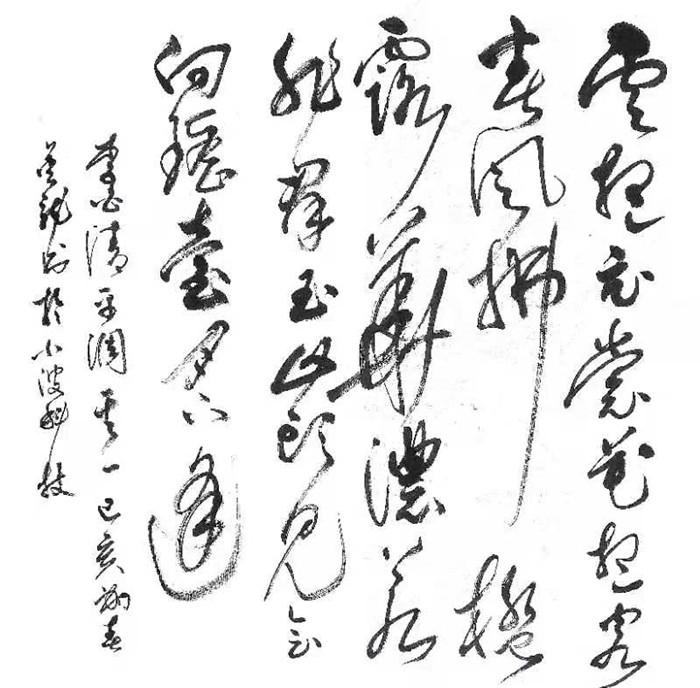 雲想衣裳花想容
春風拂檻
露華濃若
非群玉山頭見會
向瑤臺月下逢
李白清平調其一己亥春
於小波